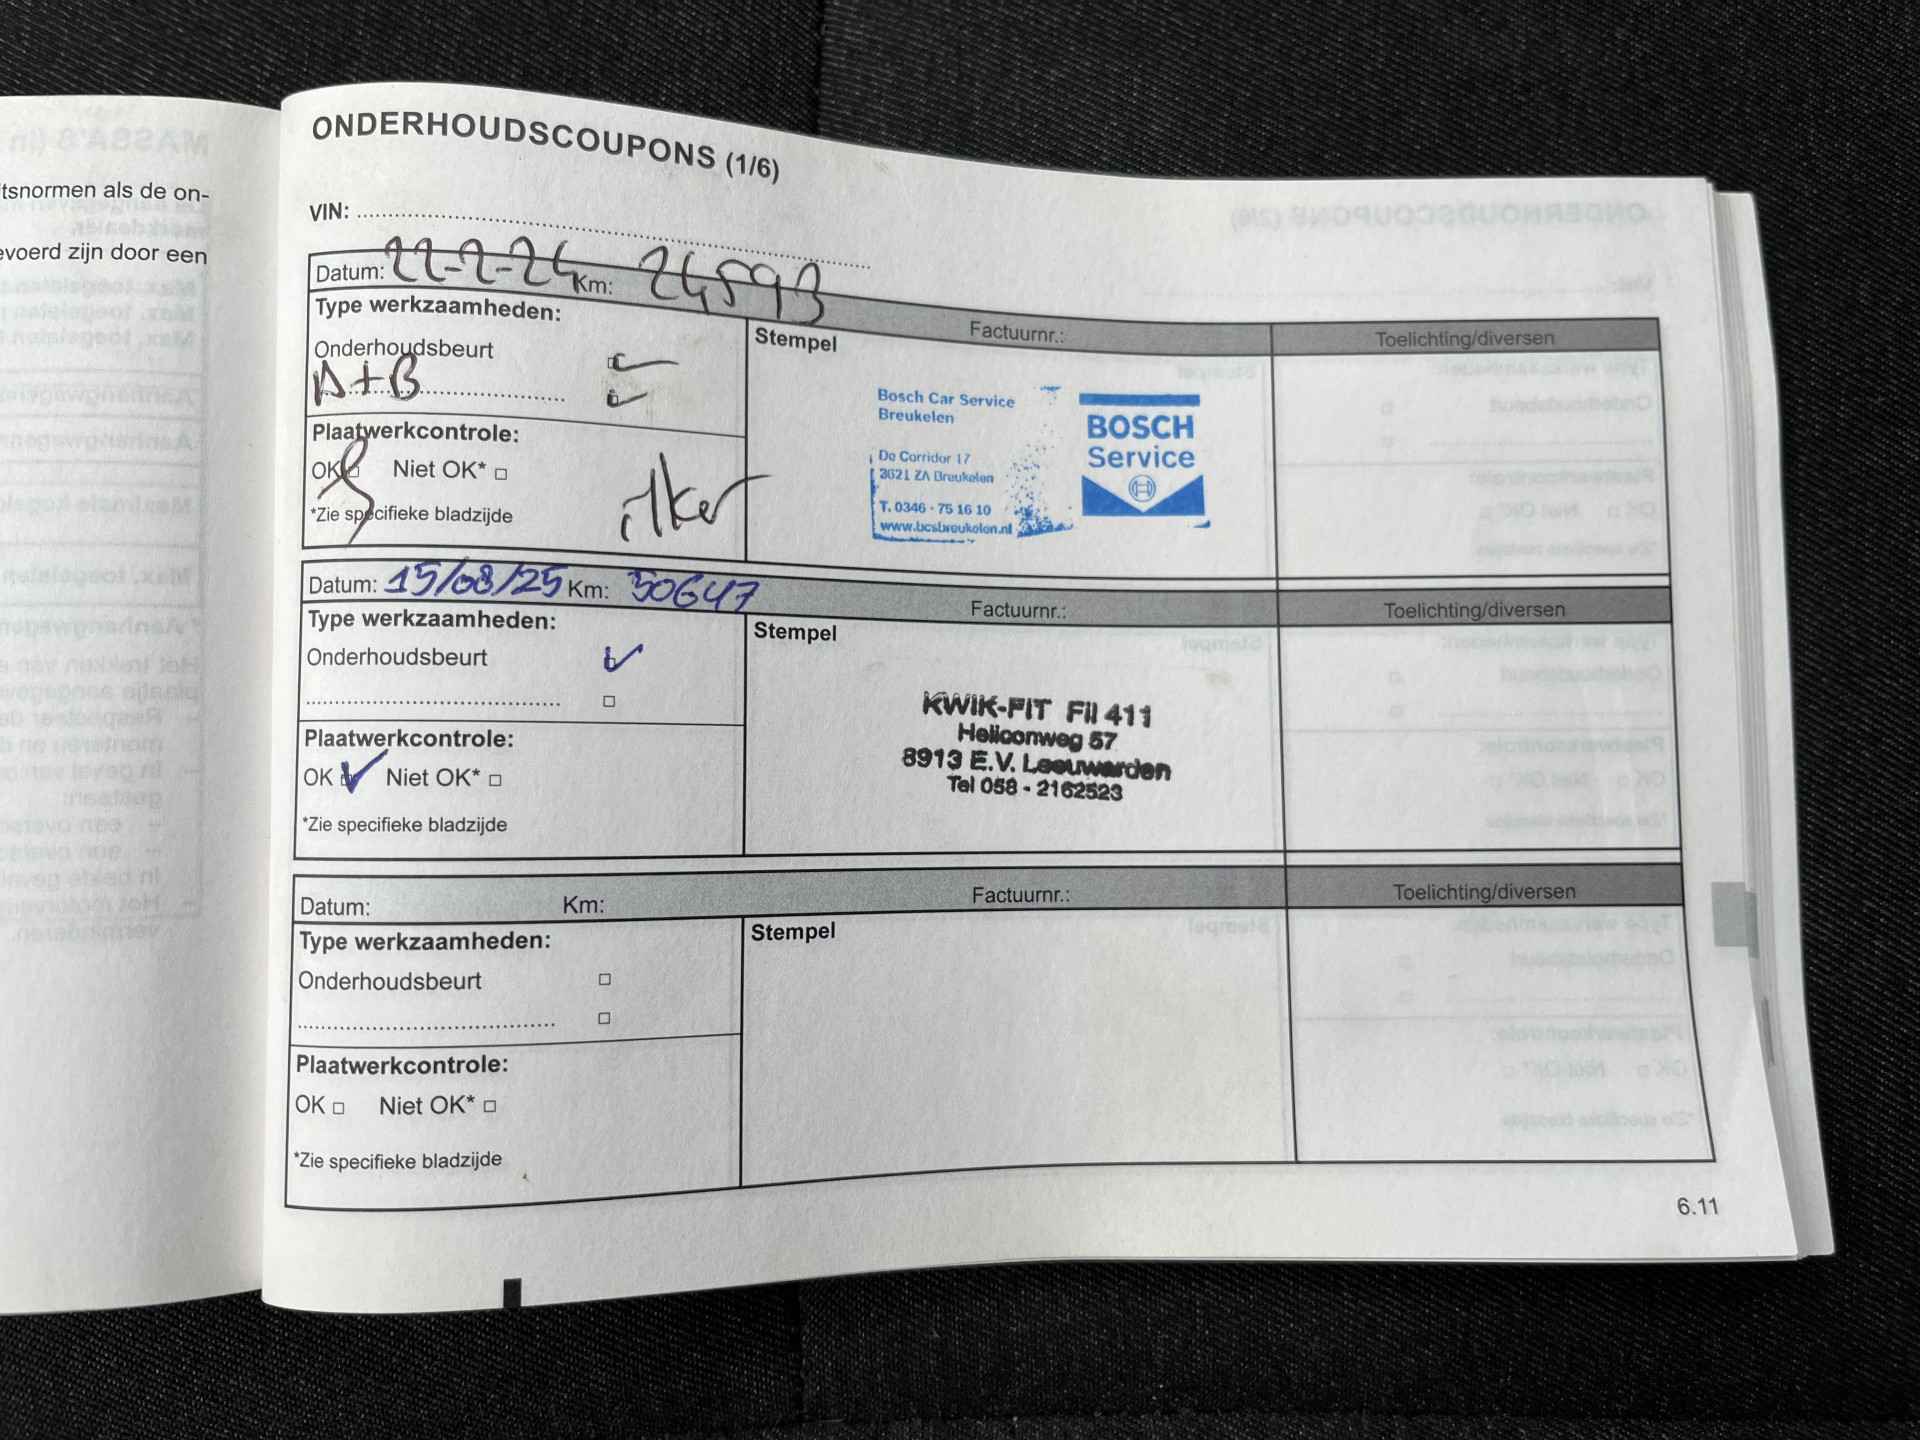 tsnormen als de on-
evoerd zijn door een
ONDERHOUDSCOUPONS (1/6)
VIN:
Datum: 22-2-24 Km: 24593
Factuurnr.:
Toelichting/diversen
Type werkzaamheden:
Stempel
Onderhoudsbeurt
A+B
Plaatwerkcontrole:
OK Niet OK*
*Zie specifieke bladzijde
ilker
Bosch Car Service
Breukelen
De Corridor 17
3621 ZA Breukelen
T. 0346 - 75 16 10
www.bcsbreukelen.nl
BOSCH
Service
Datum: 15/08/25 Km: 50647
Factuurnr.:
Toelichting/diversen
Type werkzaamheden:
Stempel
Onderhoudsbeurt
Plaatwerkcontrole:
OK Niet OK*
*Zie specifieke bladzijde
KWIK-FIT Fil 411
Heliconweg 57
8913 E.V. Leeuwarden
Tel 058 - 2162523
Datum: Km:
Factuurnr.:
Toelichting/diversen
Type werkzaamheden:
Stempel
Onderhoudsbeurt
Plaatwerkcontrole:
OK Niet OK*
*Zie specifieke bladzijde
6.11